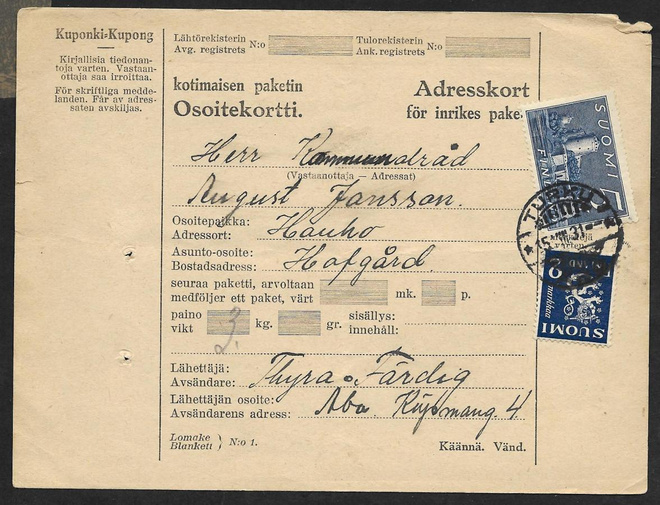 Kuponki-Kupong
Kirjallisia tiedonan-
toja varten. Vastaan-
ottaja saa irroittaa.
För skriftliga medde-
landen. Får av adres-
saten avskiljas.
Lähtörekisterin
Avg. registrets N:o
Tulorekisterin
Ank. registrets N:o
kotimaisen paketin
Osoitekortti.
Adresskort
för inrikes pake.
Herr Kommunalråd
(Vastaanottaja — Adressat)
August Jansson.
Osoitepaikka:
Adressort: Hauho
Asunto-osoite:
Bostadsadress: Hofgård.
seuraa paketti, arvoltaan
medföljer ett paket, värt mk. p.
paino
vikt 3 kg. gr.
sisällys:
innehåll:
Lähettäjä:
Avsändare: Thyra Färdig
Lähettäjän osoite:
Avsändarens adress: Åbo 4
Lomake
Blankett N:o 1.
Käännä. Vänd.
SUOMI
5
FINLAND
TURKU
31
markkaa
SUOMI